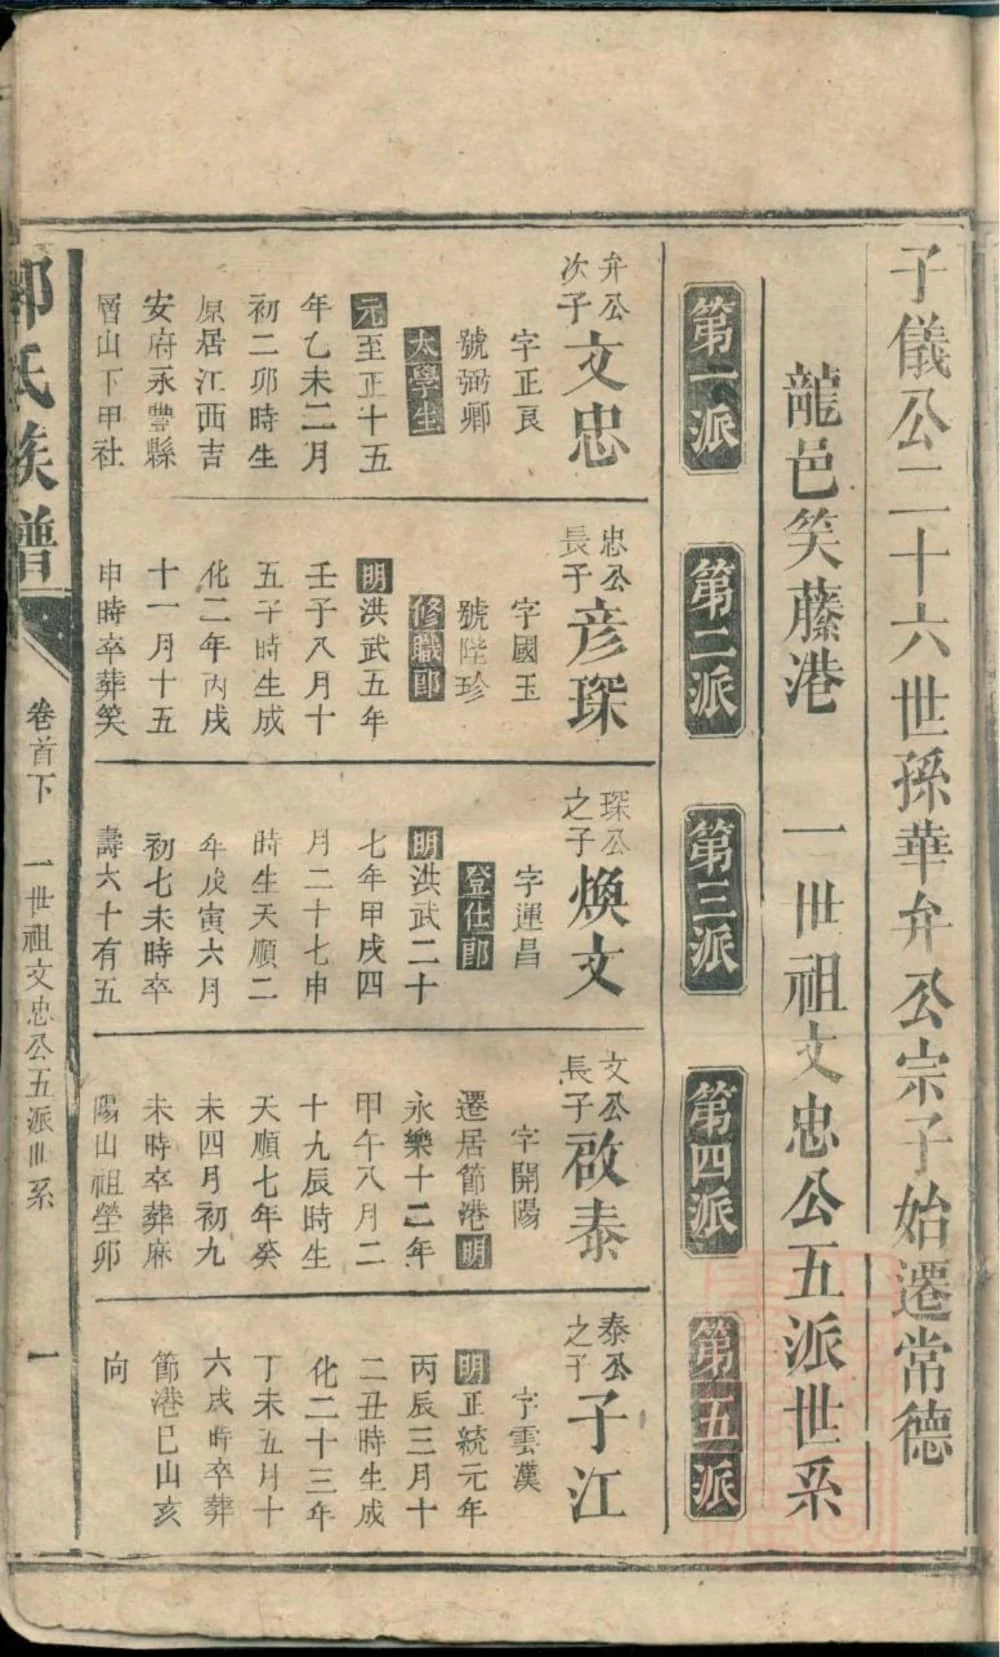 子儀公二十六世孫華弁公宗子始遷常德
龍邑笑藤港 一世祖文忠公五派世系
第一派
第二派
第三派
第四派
第五派
弁公
次子
文忠
字正良
號弼卿
太學生
元至正十五
年乙未二月
初二卯時生
原居江西吉
安府永豐縣
層山下甲社
忠公
長子
彦琛
字國玉
號陛珍
修職郎
明洪武五年
壬子八月十
五子時生成
化二年丙戌
十一月十五
申時卒葬笑
琛公
之子
煥文
字運昌
登仕郎
明洪武二十
七年甲戌四
月二十七申
時生天順二
年戊寅六月
初七未時卒
壽六十有五
文公
長子
啟泰
字開陽
遷居節港明
永樂十二年
甲午八月二
十九辰時生
天順七年癸
未四月初九
未時卒葬麻
陽山祖塋卯
泰公
之子
子江
字雲漢
明正統元年
丙辰三月十
二丑時生成
化二十三年
丁未五月十
六戌時卒葬
節港巳山亥
向
氏族譜
卷首下
一世祖文忠公五派世系
一